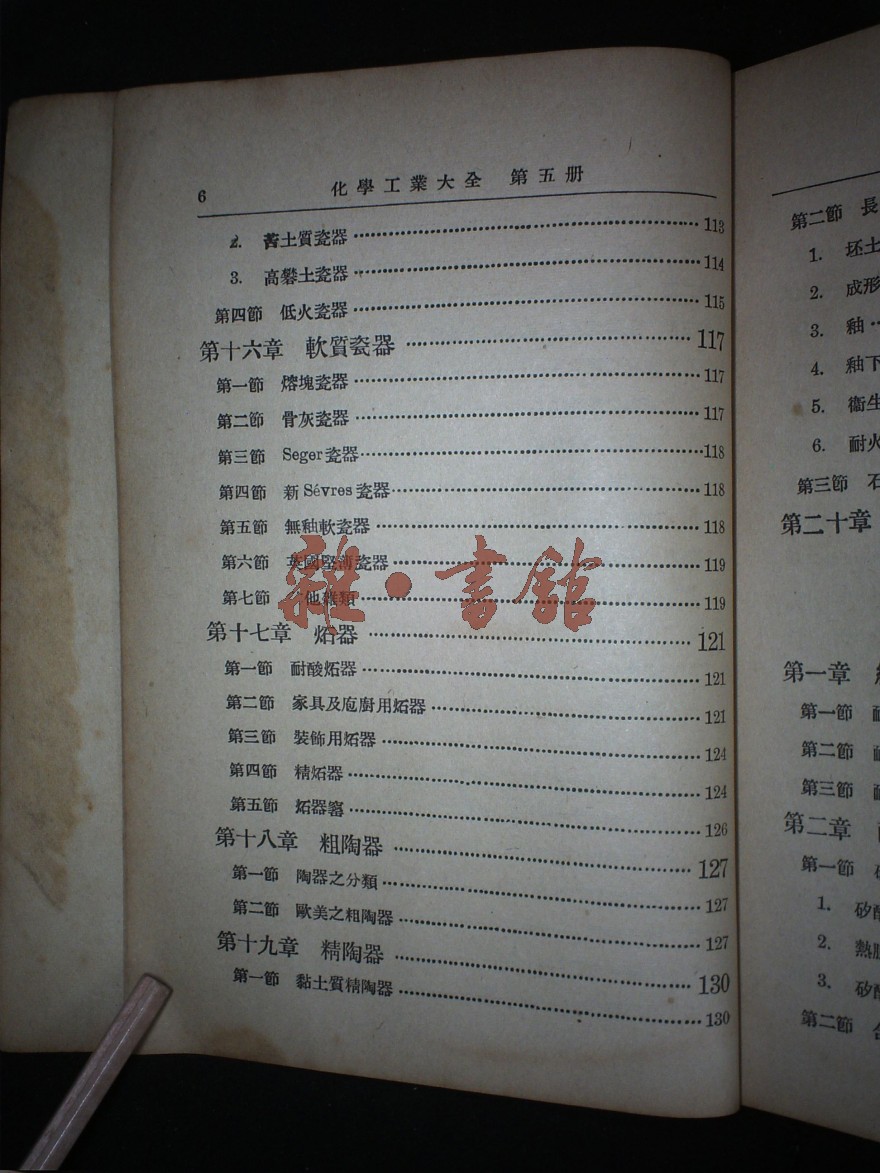 6 化學工業大全 第五册
2. 苦土質瓷器 113
3. 高礬土瓷器 114
第四節 低火瓷器 115
第十六章 軟質瓷器 117
第一節 熔塊瓷器 117
第二節 骨灰瓷器 117
第三節 Seger瓷器 118
第四節 新Sévres瓷器 118
第五節 無釉軟瓷器 118
第六節 英國堅薄瓷器 119
第七節 他雜類 119
第十七章 炻器 121
第一節 耐酸炻器 121
第二節 家具及庖廚用炻器 121
第三節 裝飾用炻器 124
第四節 精炻器 124
第五節 炻器窰 126
第十八章 粗陶器 127
第一節 陶器之分類 127
第二節 歐美之粗陶器 127
第十九章 精陶器 130
第一節 黏土質精陶器 130
雜·書館
第二節 長
1. 坯土
2. 成形
3. 釉
4. 釉下
5. 衞生
6. 耐火
第三節 石
第二十章
第一章
第一節 耐
第二節 耐
第三節 耐
第二章
第一節
1. 矽酸
2. 熱膨
3. 矽酸
第二節